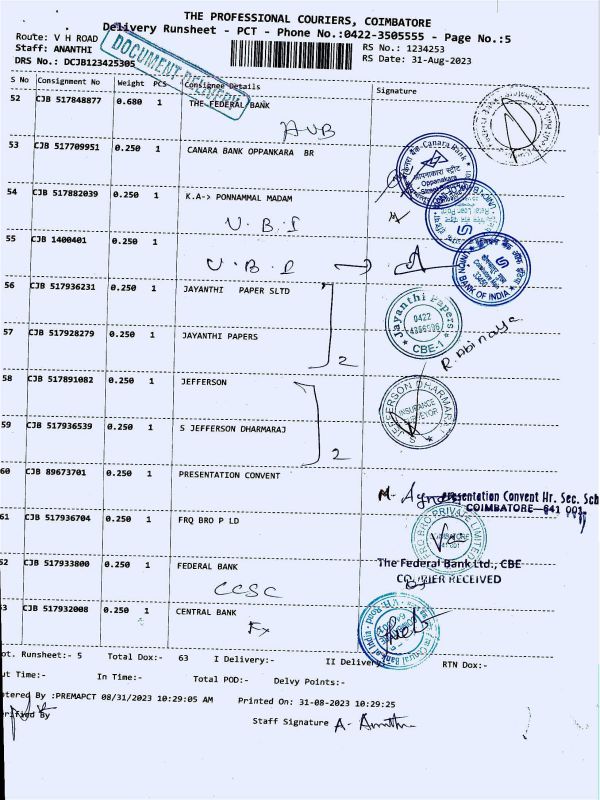 THE PROFESSIONAL COURIERS, COIMBATORE
Delivery Runsheet - PCT - Phone No.:0422-3505555 - Page No.:5
Route: V H ROAD
RS No.: 1234253
Staff: ANANTHI
RS Date: 31-Aug-2023
DRS No.: DCJB123425305
DOCUMENT DELIVERY
S No Consignment No Weight PCS Consignee Details Signature
52 CJB 517848877 0.680 1 THE FEDERAL BANK
53 CJB 517709951 0.250 1 CANARA BANK OPPANKARA BR
Canara Bank
54 CJB 517882039 0.250 1 K.A-> PONNAMMAL MADAM
U.B.I
55 CJB 1400401 0.250 1
U.B.I
BANK OF INDIA
56 CJB 517936231 0.250 1 JAYANTHI PAPER SLTD
Jayanthi Papers
0422
CBE-1
57 CJB 517928279 0.250 1 JAYANTHI PAPERS
2
R Abinaya
58 CJB 517891082 0.250 1 JEFFERSON
S. JEFFERSON DHARMARAJ
INSURANCE
SURVEYOR
59 CJB 517936539 0.250 1 S JEFFERSON DHARMARAJ
2
60 CJB 89673701 0.250 1 PRESENTATION CONVENT
Presentation Convent Hr. Sec. Sch
COIMBATORE-641 001.
61 CJB 517936704 0.250 1 FRQ BRO P LD
52 CJB 517933800 0.250 1 FEDERAL BANK
The Federal Bank Ltd., CBE
COURIER RECEIVED
CCSC
53 CJB 517932008 0.250 1 CENTRAL BANK
Central Bank of India
ot. Runsheet:- 5 Total Dox:- 63 I Delivery:- II Delivery RTN Dox:-
ut Time:- In Time:- Total POD:- Delvy Points:-
tered By :PREMAPCT 08/31/2023 10:29:05 AM Printed On: 31-08-2023 10:29:25
rified By
Staff Signature